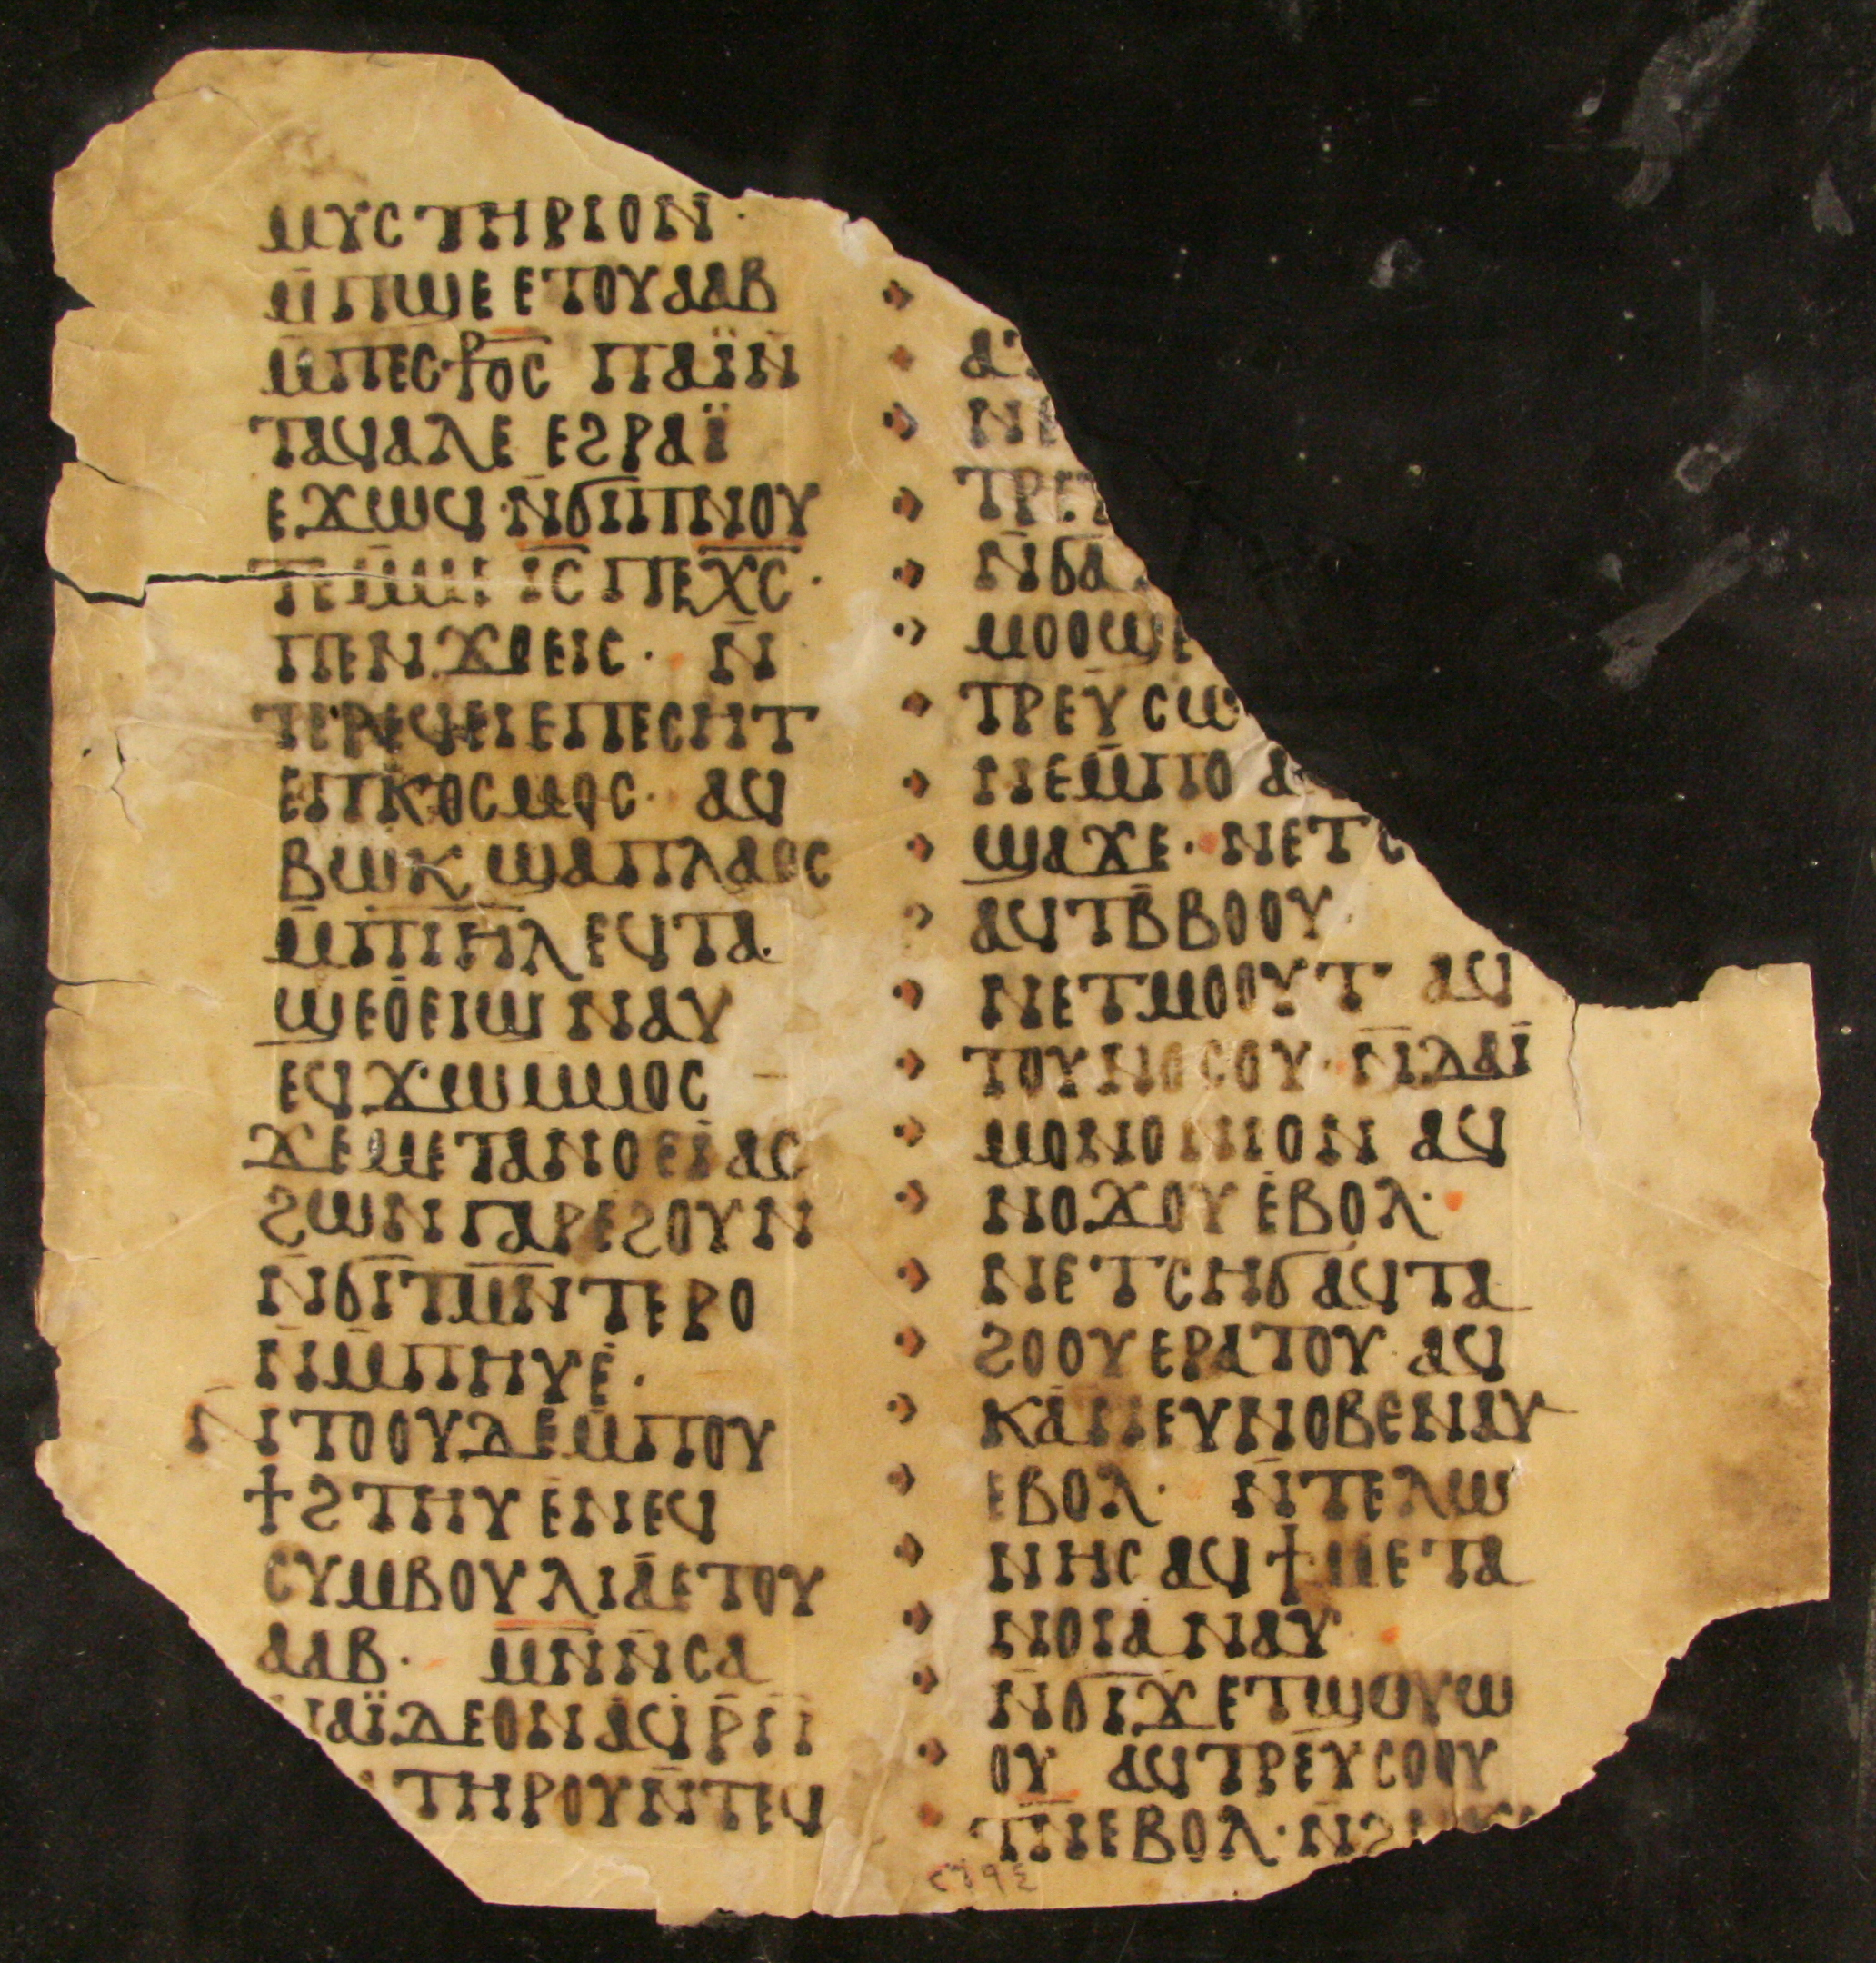 ⲙⲩⲥⲧⲏⲣⲓⲟⲛ·
ⲙ̄ⲡϣⲉ ⲉⲧⲟⲩⲁⲁⲃ
ⲙ̄ⲡⲉⲥ⳨ⲟⲥ ⲡⲁⲓ̈ⲛ̄
ⲧⲁϥⲁⲗⲉ ⲉϩⲣⲁⲓ̈
ⲉϫⲱϥ·ⲛ̄ϭⲓⲡⲛⲟⲩ
ⲧⲉ ⲙⲙⲉ ⲓ̅ⲥ̅ ⲡⲉⲭ̅ⲥ̅·
ⲡⲉⲛϫⲟⲉⲓⲥ· ⲛ̄
ⲧⲉⲣⲉϥⲉⲓⲉⲡⲉⲥⲏⲧ
ⲉⲡⲕⲟⲥⲙⲟⲥ· ⲁϥ
ⲃⲱⲕ ϣⲁⲡⲗⲁⲟⲥ
ⲙ̄ⲡⲓ̅ⲏ̅ⲗ̅ ⲉϥⲧⲁ
ϣⲉⲟⲉⲓϣ ⲛⲁⲩ
ⲉϥϫⲱⲙⲙⲟⲥ
ϫⲉⲙⲉⲧⲁⲛⲟⲉⲓ ⲁⲥ
ϩⲱⲛ ⲅⲁⲣ ⲉϩⲟⲩⲛ
ⲛ̄ϭⲓⲧⲙ̄ⲛ̄ⲧⲉⲣⲟ
ⲛ̄ⲙ̄ⲡⲏⲩⲉ·
ⲛ̄ⲧⲟⲟⲩⲇⲉⲙ̄ⲡⲟⲩ
ϯϩⲧⲏⲩ ⲉⲛⲉϥ
ⲥⲩⲙⲃⲟⲩⲗⲓⲁⲉⲧⲟⲩ
ⲁⲁⲃ· ⲙⲛ̄ⲛ̄ⲥⲁ
ⲛⲁⲓ̈ⲇⲉⲟⲛⲁϥⲣ̄ⲡ
ⲧⲏⲣⲟⲩⲛ̄ⲧⲉϥ
ⲁ
ⲛⲉ
ⲧⲣⲉⲩ
ⲛ̄ϭⲁ
ⲙⲟⲟϣⲉ
ⲧⲣⲉⲩⲥⲱ
ⲛⲉⲙ̄ⲡⲟ ⲁ
ϣⲁϫⲉ· ⲛⲉⲧⲥ
ⲁϥⲧⲃ̄ⲃⲟⲟⲩ·
ⲛⲉⲧⲙⲟⲟⲩⲧ ⲁϥ
ⲧⲟⲩⲛⲟⲥⲟⲩ· ⲛ̄ⲇⲁⲓ
ⲙⲟⲛⲟⲛⲓⲟⲛ ⲁϥ
ⲛⲟϫⲟⲩ ⲉⲃⲟⲗ·
ⲛⲉⲧⲥⲏϭ ⲁϥⲧⲁ
ϩⲟⲟⲩ ⲉⲣⲁⲧⲟⲩ· ⲁϥ
ⲕⲁⲛⲉⲩⲛⲟⲃⲉⲛⲁⲩ
ⲉⲃⲟⲗ· ⲛ̄ⲧⲉⲗⲱ
ⲛⲏⲥ ⲁϥϯⲙⲉⲧⲁ
ⲛⲟⲓⲁ ⲛⲁⲩ·
ⲛ̄ϭⲓϫⲉⲧϣⲟⲩⲱ
ⲟⲩ ⲁϥⲧⲣⲉⲩⲥⲟⲟⲩ
ⲧⲛ̄ⲉⲃⲟⲗ·ⲛ̄ϩ
٢٦٩٤